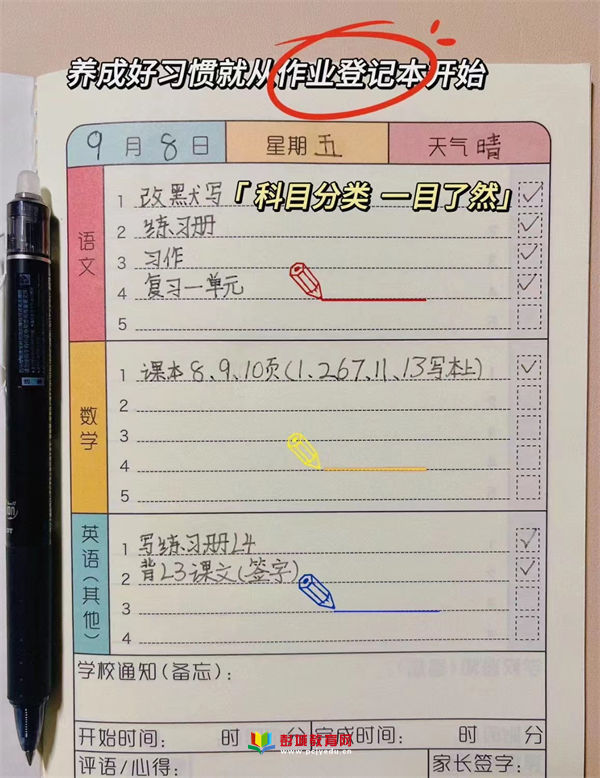 养成好习惯就从作业登记本开始
9月8日 星期五 天气晴
语文
1 改默写 「科目分类 一目了然」
2 练习册
3 习作
4 复习一单元
5
数学
1 课本8、9、10页(1、267、11、13写本上)
2
3
4
5
英语(其他)
1 写练习册L4
2 背L3课文(签字)
3
4
学校通知(备忘):
开始时间: 时 分 完成时间: 时 分
彭项教育网
www.pcjyedu.cn
评语/心得: 家长签字: